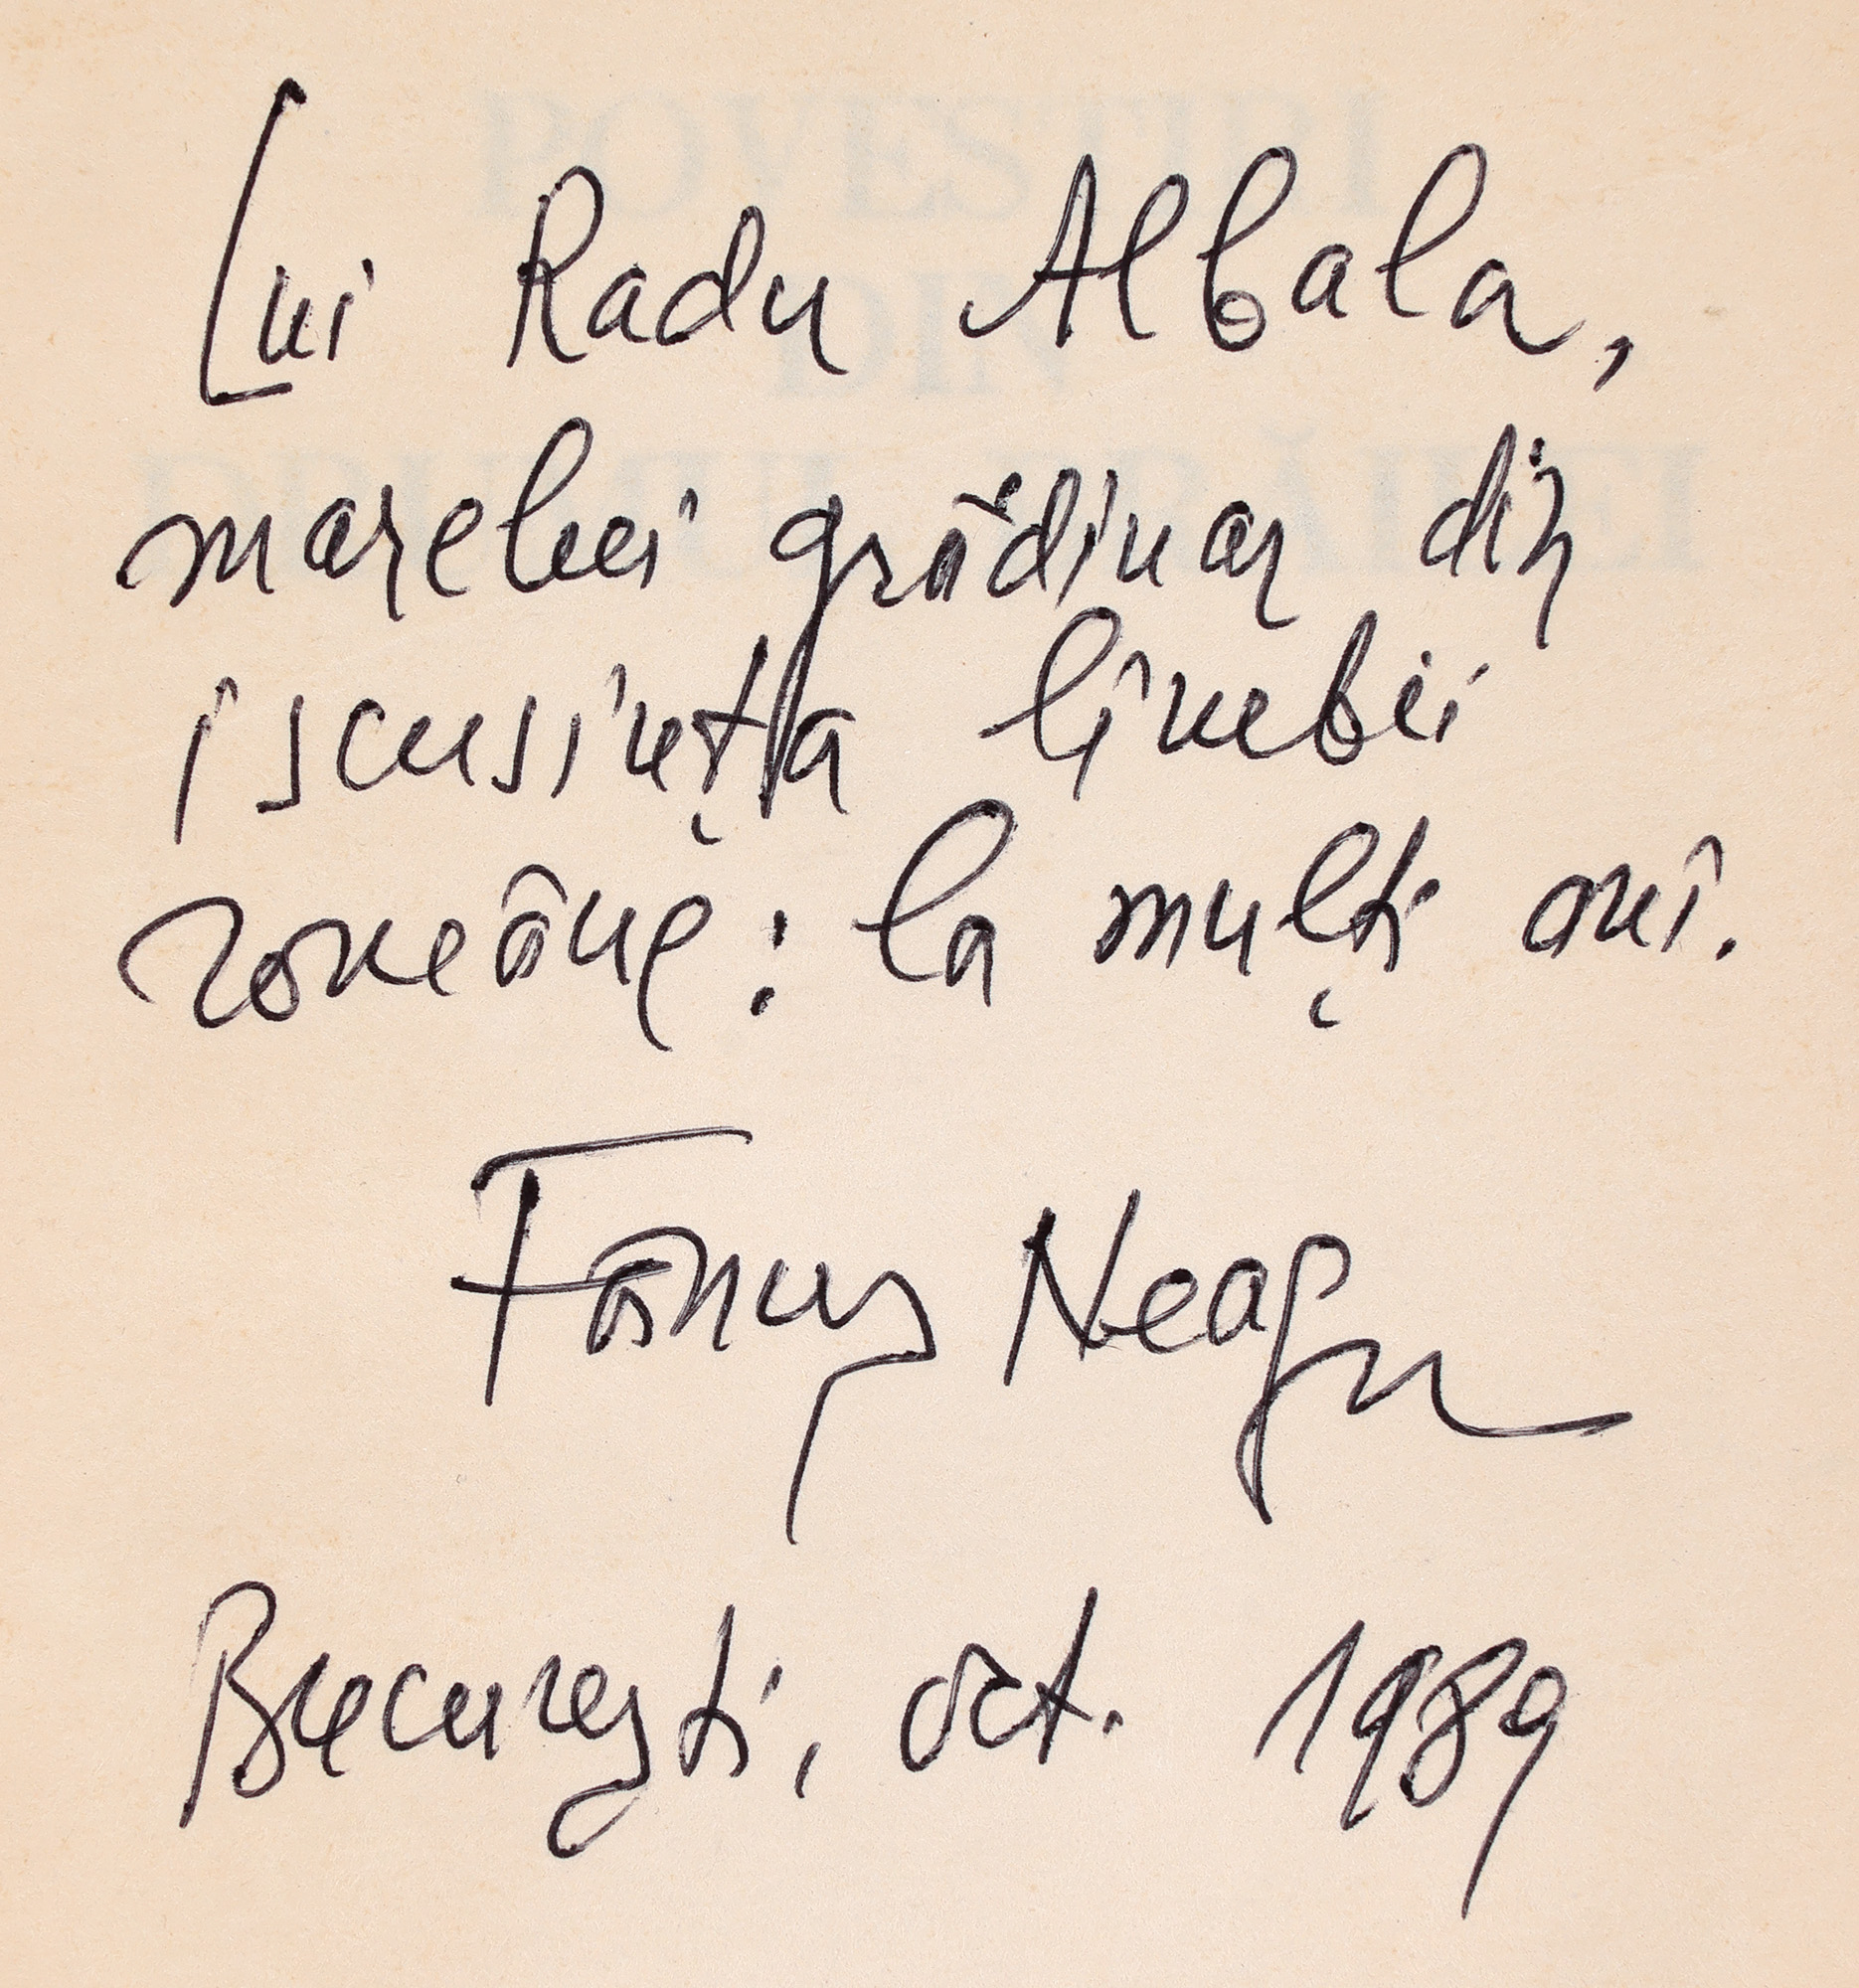 Lui Radu Albala,
marelui grădinar din
iscusința limbii
române: la mulți ani.
Fănuș Neagu
București, oct. 1989